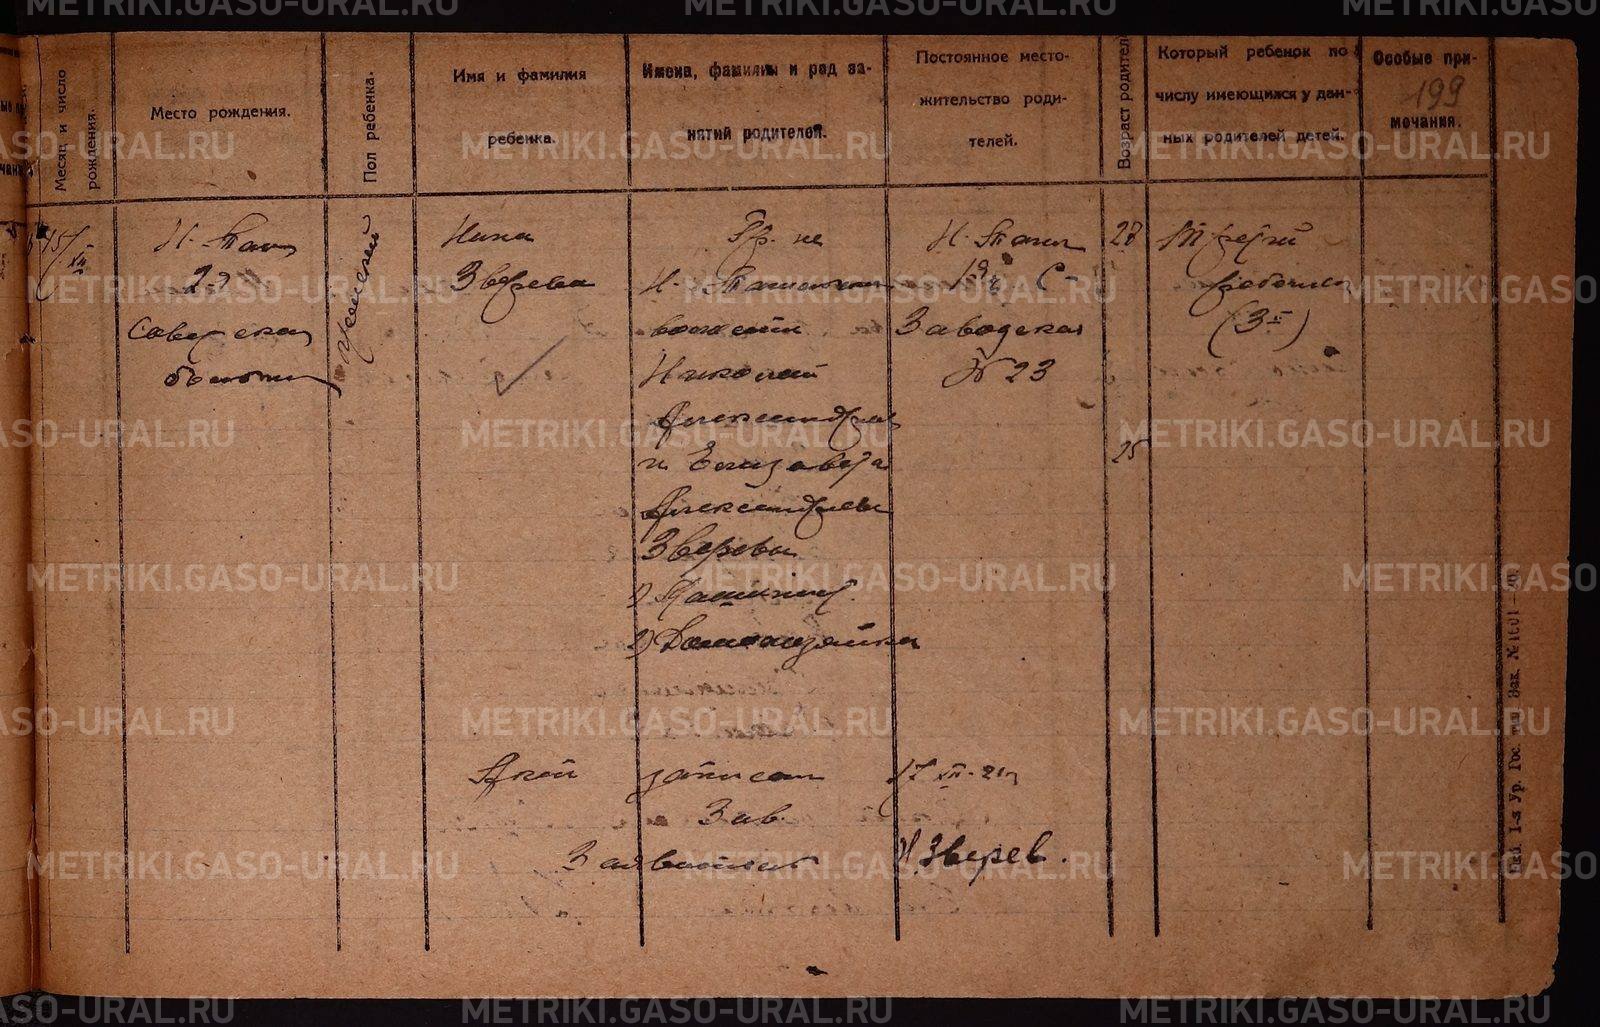 Месяц и число рождения.
Место рождения.
Пол ребенка.
Имя и фамилия
ребенка.
Имена, фамилии и род за-
нятий родителей.
Постоянное место-
жительство роди-
телей.
Возраст родителей
Который ребенок по
числу имеющихся у дан-
ных родителей детей.
Особые при-
мечания.
199
15/XII
Н-Таг
2-я
Советская
больниц
Женский
Нина
Зверева
Гр. не
Н.
Николай
Александров
и Елизавета
Александрова
Зверевы
1)
2) Домохозяйка
Н-Таги
Заводская
№ 23
27
25
Третий
ребенок
(3-й)
Акт записан 17 XII-21
Зав.
Заявитель Н Зверев.
1-я Ур. Гос. тип. Зак. № 1601
METRIKI.GASO-URAL.RU